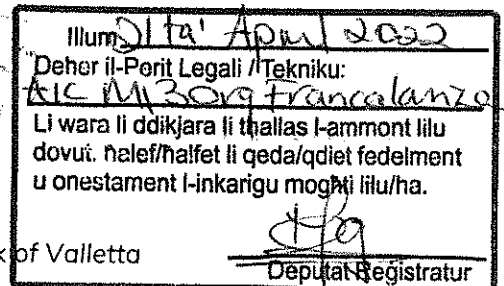 Illum 21 ta' April 2022
Dehor il-Perit Legali / Tekniku:
AIC Mizorg Francalanza
Li wara li ddikjara li tħallas l-ammont lilu
dovut. ħalef/ħalfet li qeda/qdiet fedelment
u onestament l-inkarigu mogħti lilu/ha.
k of Valletta
Deputat Reġistratur